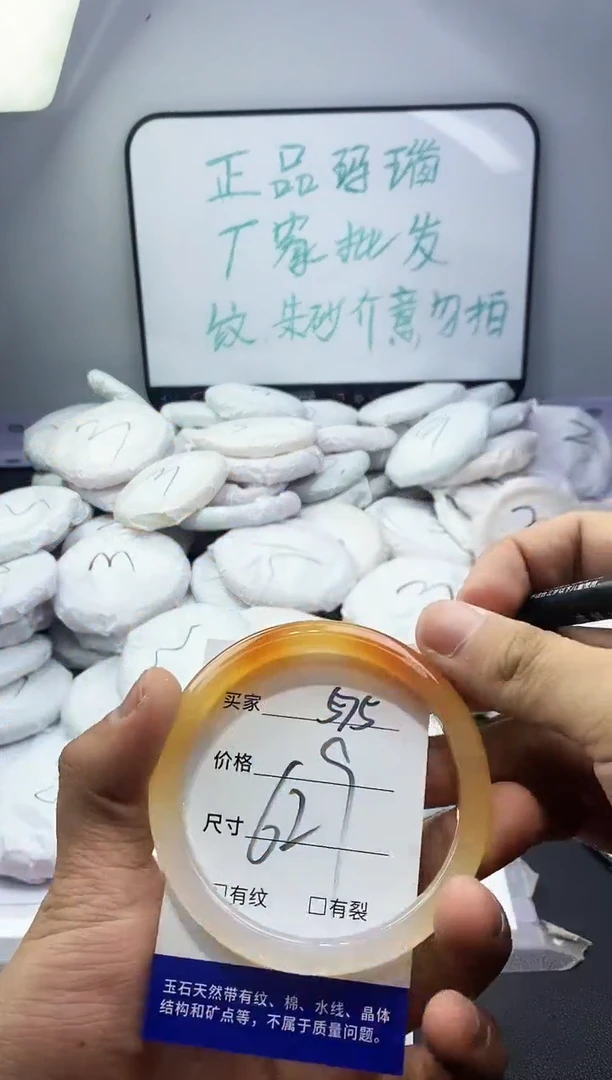 正品玛瑙
厂家批发
纹.朱砂介意勿拍
3
3
9
m
3
买家 575
价格 9
尺寸 62
□有纹 □有裂
玉石天然带有纹、棉、水线、晶体
结构和矿点等，不属于质量问题。